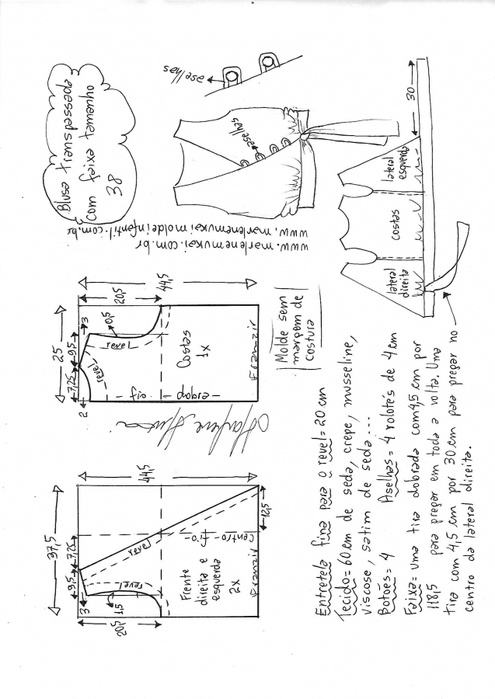 Blusa transpassada
com faixa tamanho
38
aselhas
aselhas
www.marlenemukai.com.br
www.marlenemukaimoldeinfantil.com.br
30
lateral
esquerda
costas
lateral
direita
25
7,25
9,5
3
2
0,5
revel
revel
20,5
44,5
Costas
1x
dobra
fio
Franzir
Molde sem
margem de
costura
37,5
9,5
7,25
3
1,5
revel
revel
20,5
44,5
Frente
direita e
esquerda
2x
centro - fio
Franzir
12,5
Entretela fina para o revel = 20 cm
Tecido = 60 cm de seda, crepe, musseline,
viscose, satim de seda...
Botões = 4 Aselhas = 4 rolotês de 4 cm
Faixa = Uma tira dobrada com 4,5 cm por
118,5 para pregar em toda a volta. Uma
tira com 4,5 cm por 30 cm para pregar no
centro da lateral direita.